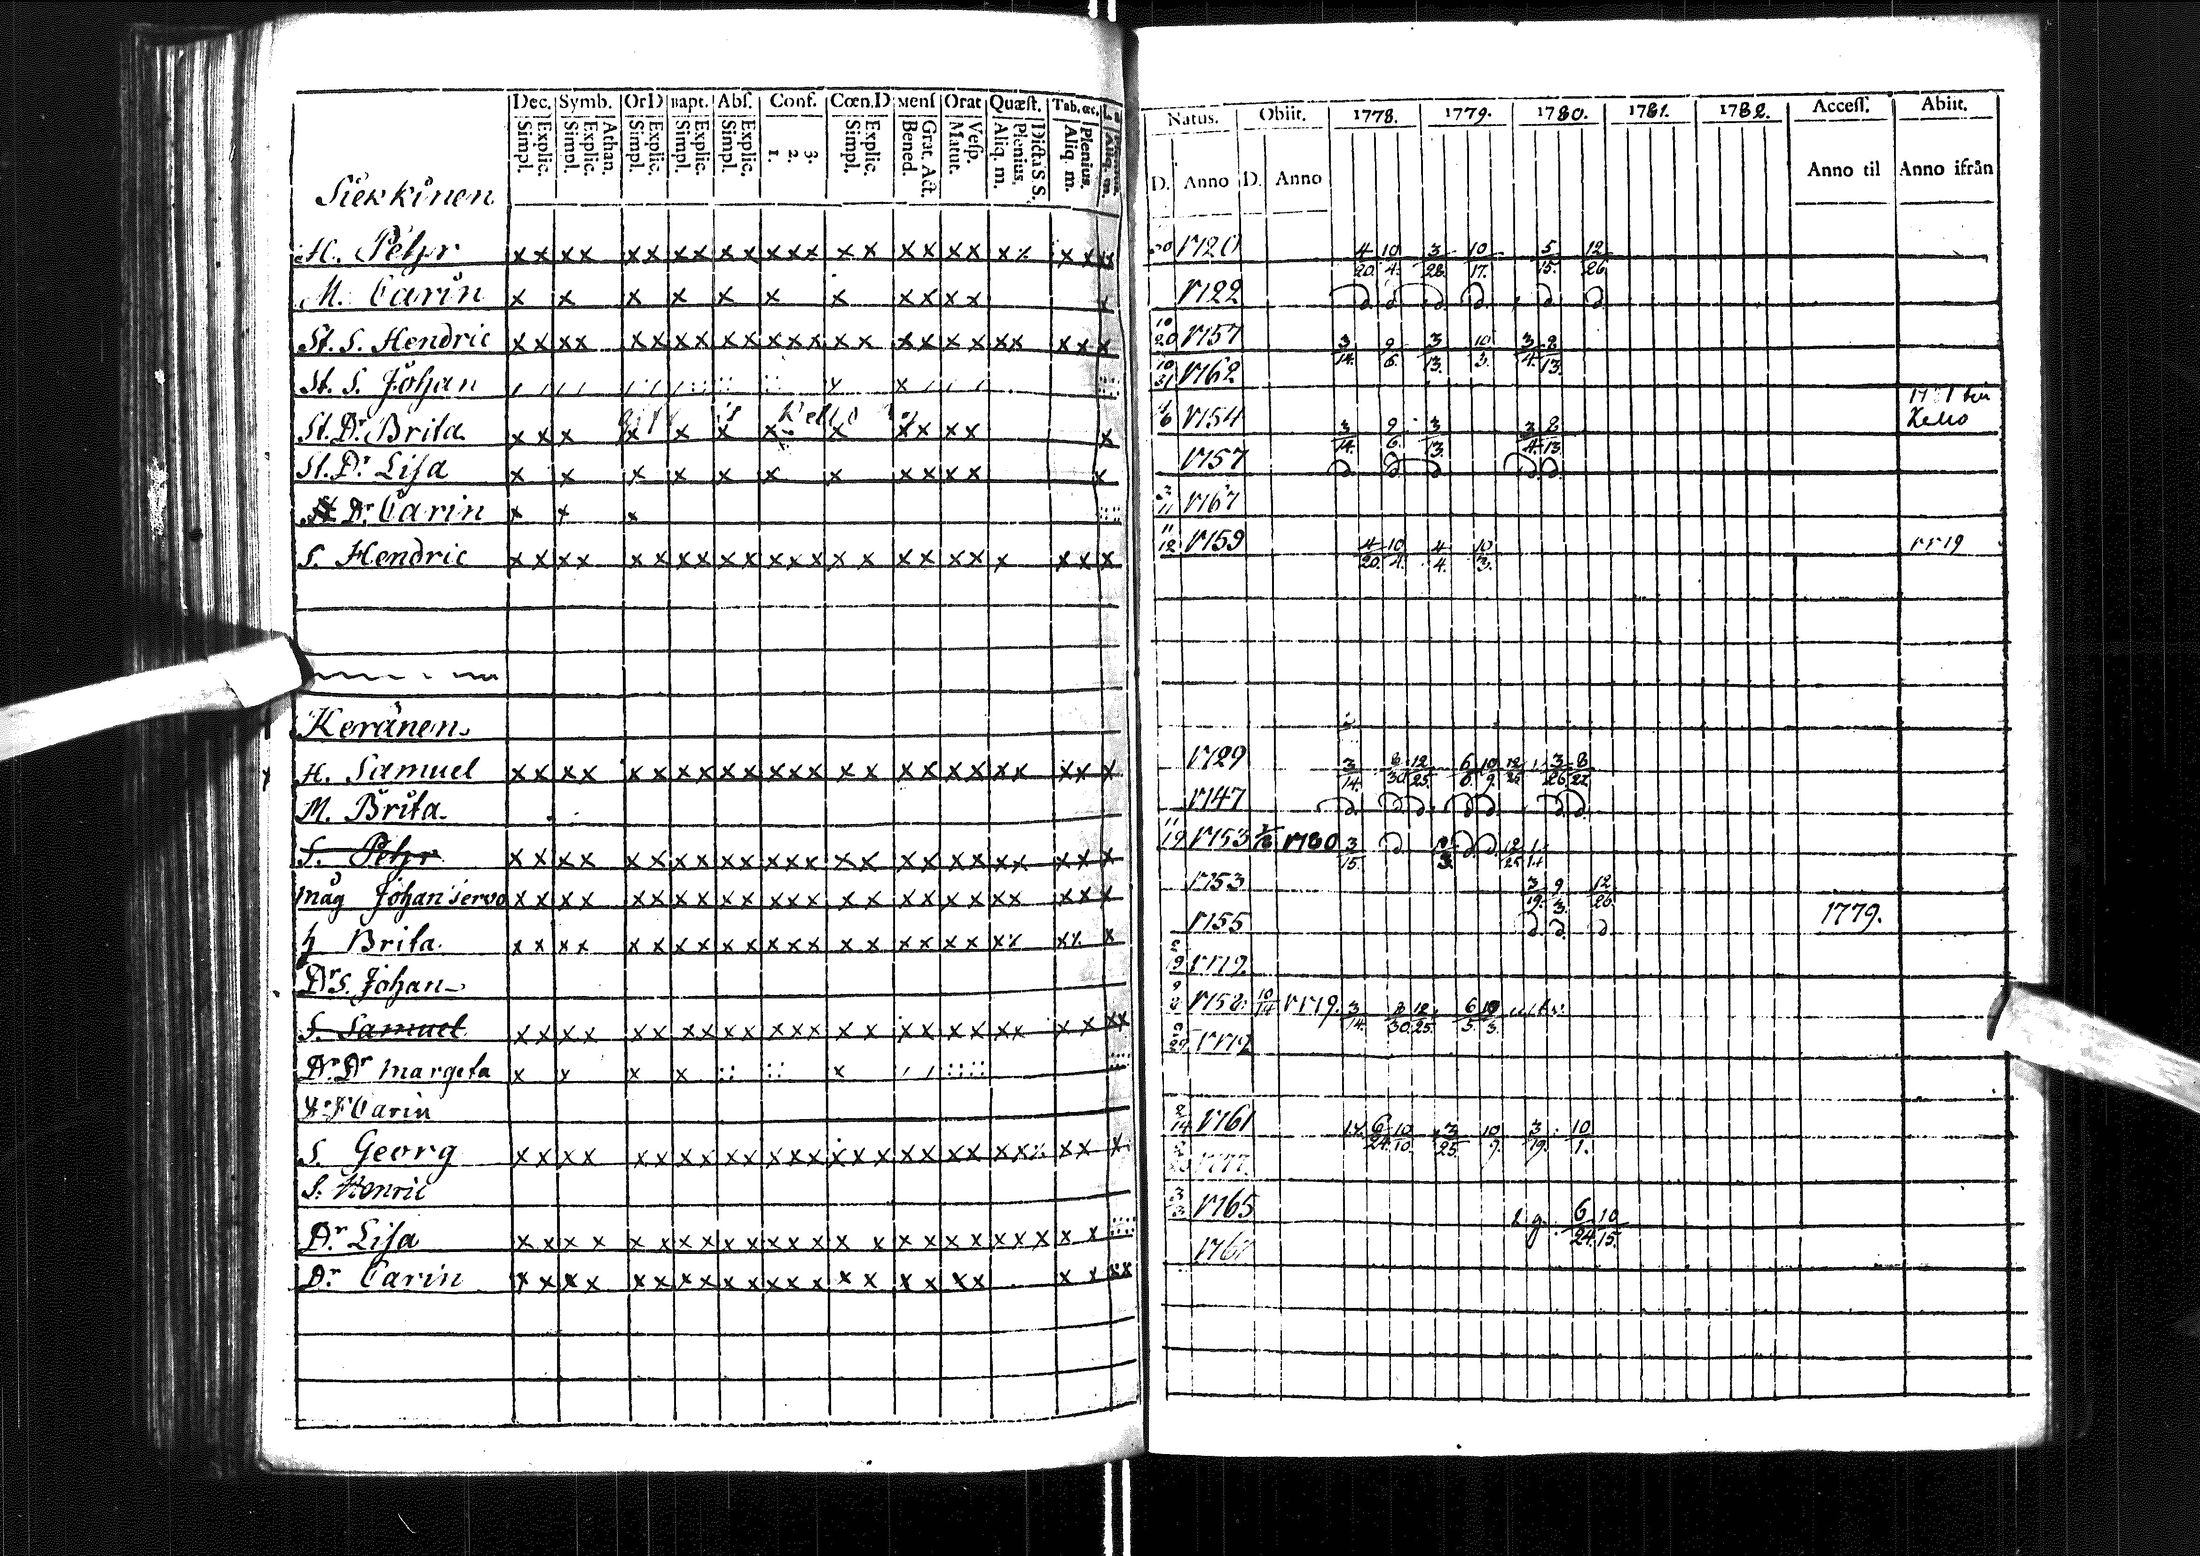 Dec. Symb. OrD Bapt. Abſ. Conf. Cœn.D Menſ Orat Quæſt. Tab. œc.
Simpl. Explic. Simpl. Explic. Athan. Simpl. Explic. Simpl. Explic. Simpl. Explic. 1. 2. 3. Simpl. Explic. Bened. Grat. Act. Matut. Veſp. Aliq. m. Plenius. Dicta S.S. Aliq. m. Plenius.
Siekkinen
H. Pehr
M. Carin
St. S. Hendric
St. S. Johan
St. Dr. Brita
St. Dr. Lisa
Dr. Carin
S. Hendric
Keränen
H. Samuel
M. Brita
S. Pehr
måg Johan Servo
h Brita
Dr S. Johan
S. Samuel
Dr. Dr Margeta
Carin
S. Georg
S. Henric
Dr. Lisa
Dr Carin
Natus. Obiit. 1778. 1779. 1780. 1781. 1782. Acceſſ. Abiit.
D. Anno D. Anno Anno til Anno ifrån
1720 4/20 10/4 3/28 10/17 5/15 12/26
1722
10/20 1757 3/14 9/6 3/13 10/3 3/4 8/13
10/21 1762
1754 3/14 9/6 3/13 3/4 8/13
1757
1767
11/12 1759 4/20 10/4 4/4 10/3
1729 3/14 8/30 12/25 6/6 10/9 3/26 8/22
1747
11/19 1753 1780 3/15
1753 3/19 9/3 12/26
1755 1779.
1779
1758 10/14 1779. 3/14 8/30 12/25 6/5 10/3
1779
2/14 1761 6/24 10/10 3/25 10/9 3/19 10/1
1777
3/3 1765 6/24 10/15